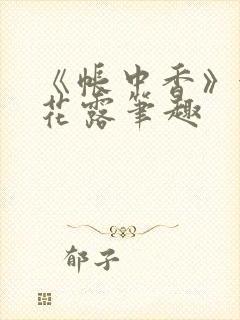 《帐中香》
花露笔趣
郁子